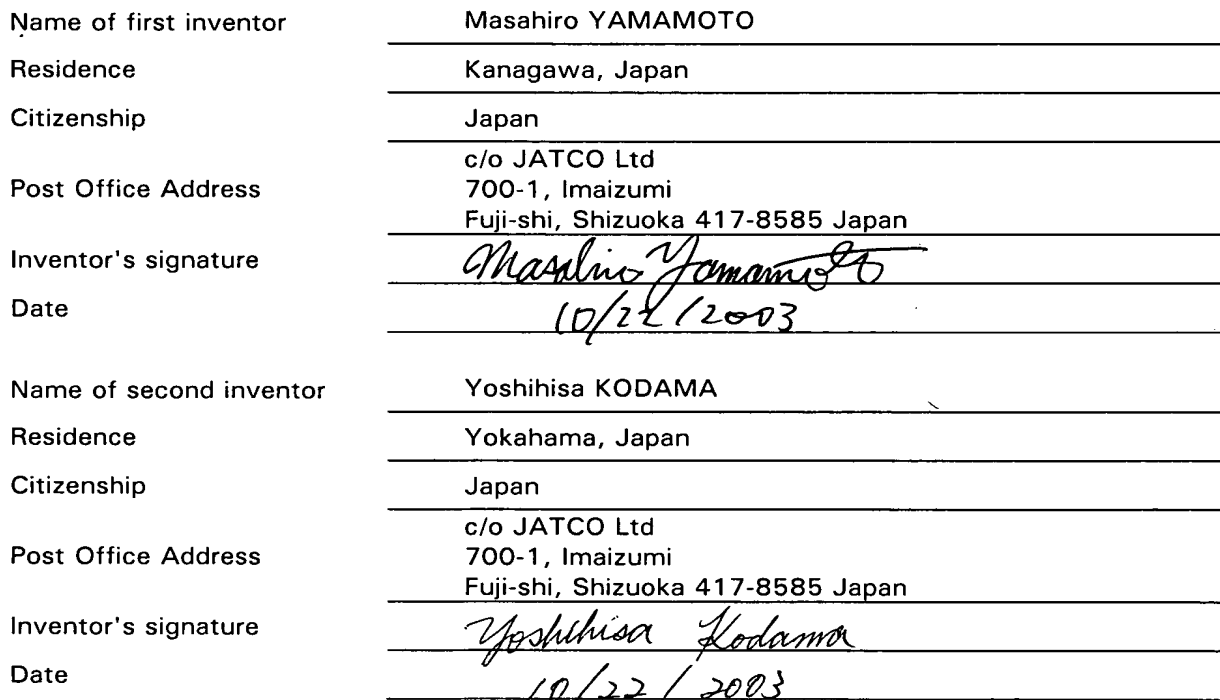 Name of first inventor Masahiro YAMAMOTO
Residence Kanagawa, Japan
Citizenship Japan
c/o JATCO Ltd
Post Office Address 700-1, Imaizumi
Fuji-shi, Shizuoka 417-8585 Japan
Inventor's signature Masahiro Yamamoto
Date 10/22/2003
Name of second inventor Yoshihisa KODAMA
Residence Yokahama, Japan
Citizenship Japan
c/o JATCO Ltd
Post Office Address 700-1, Imaizumi
Fuji-shi, Shizuoka 417-8585 Japan
Inventor's signature Yoshihisa Kodama
Date 10/22/2003